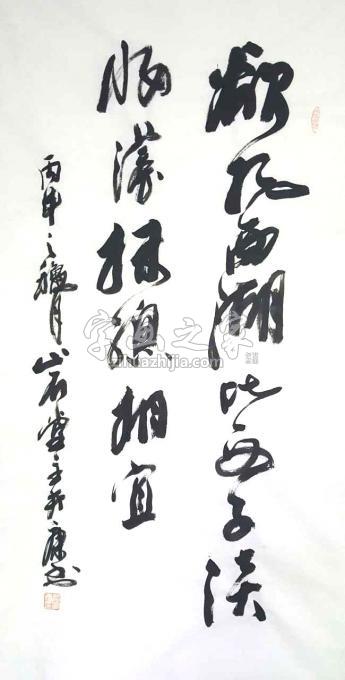 欲把西湖比西子淡
妝濃抹總相宜
丙申之穐月
字画之家
zihuazhijia.com